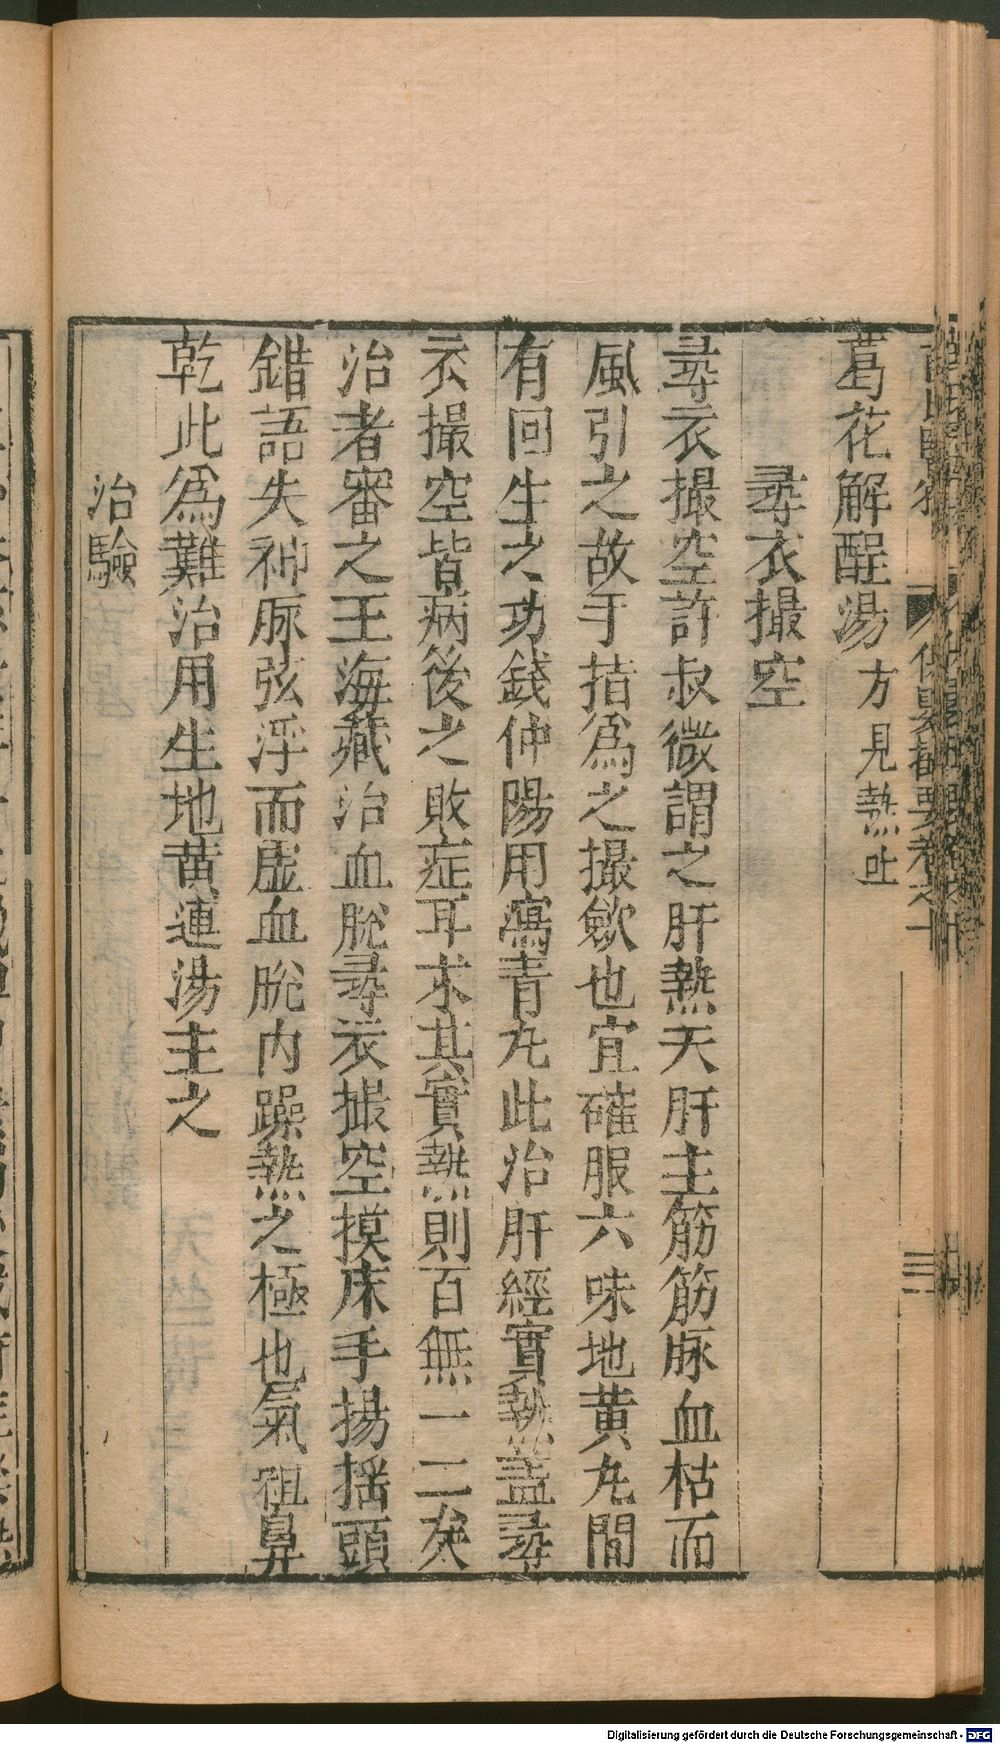 葛花解酲湯方見熱吐
尋衣撮空
尋衣撮空許叔微謂之肝熱夫肝主筋筋脉血枯而
風引之故手指爲之撮斂也宜確服六味地黄丸間
有回生之功錢仲陽用瀉青丸此治肝經實熱盖尋
衣撮空皆病後之敗症耳求其實熱則百無一二矣
治者審之王海藏治血脱尋衣撮空摸床手揚揺頭
錯語失神脉弦浮而虚血脱内躁熱之極也氣粗鼻
乾此爲難治用生地黄連湯主之
治驗
Digitalisierung gefördert durch die Deutsche Forschungsgemeinschaft - DFG